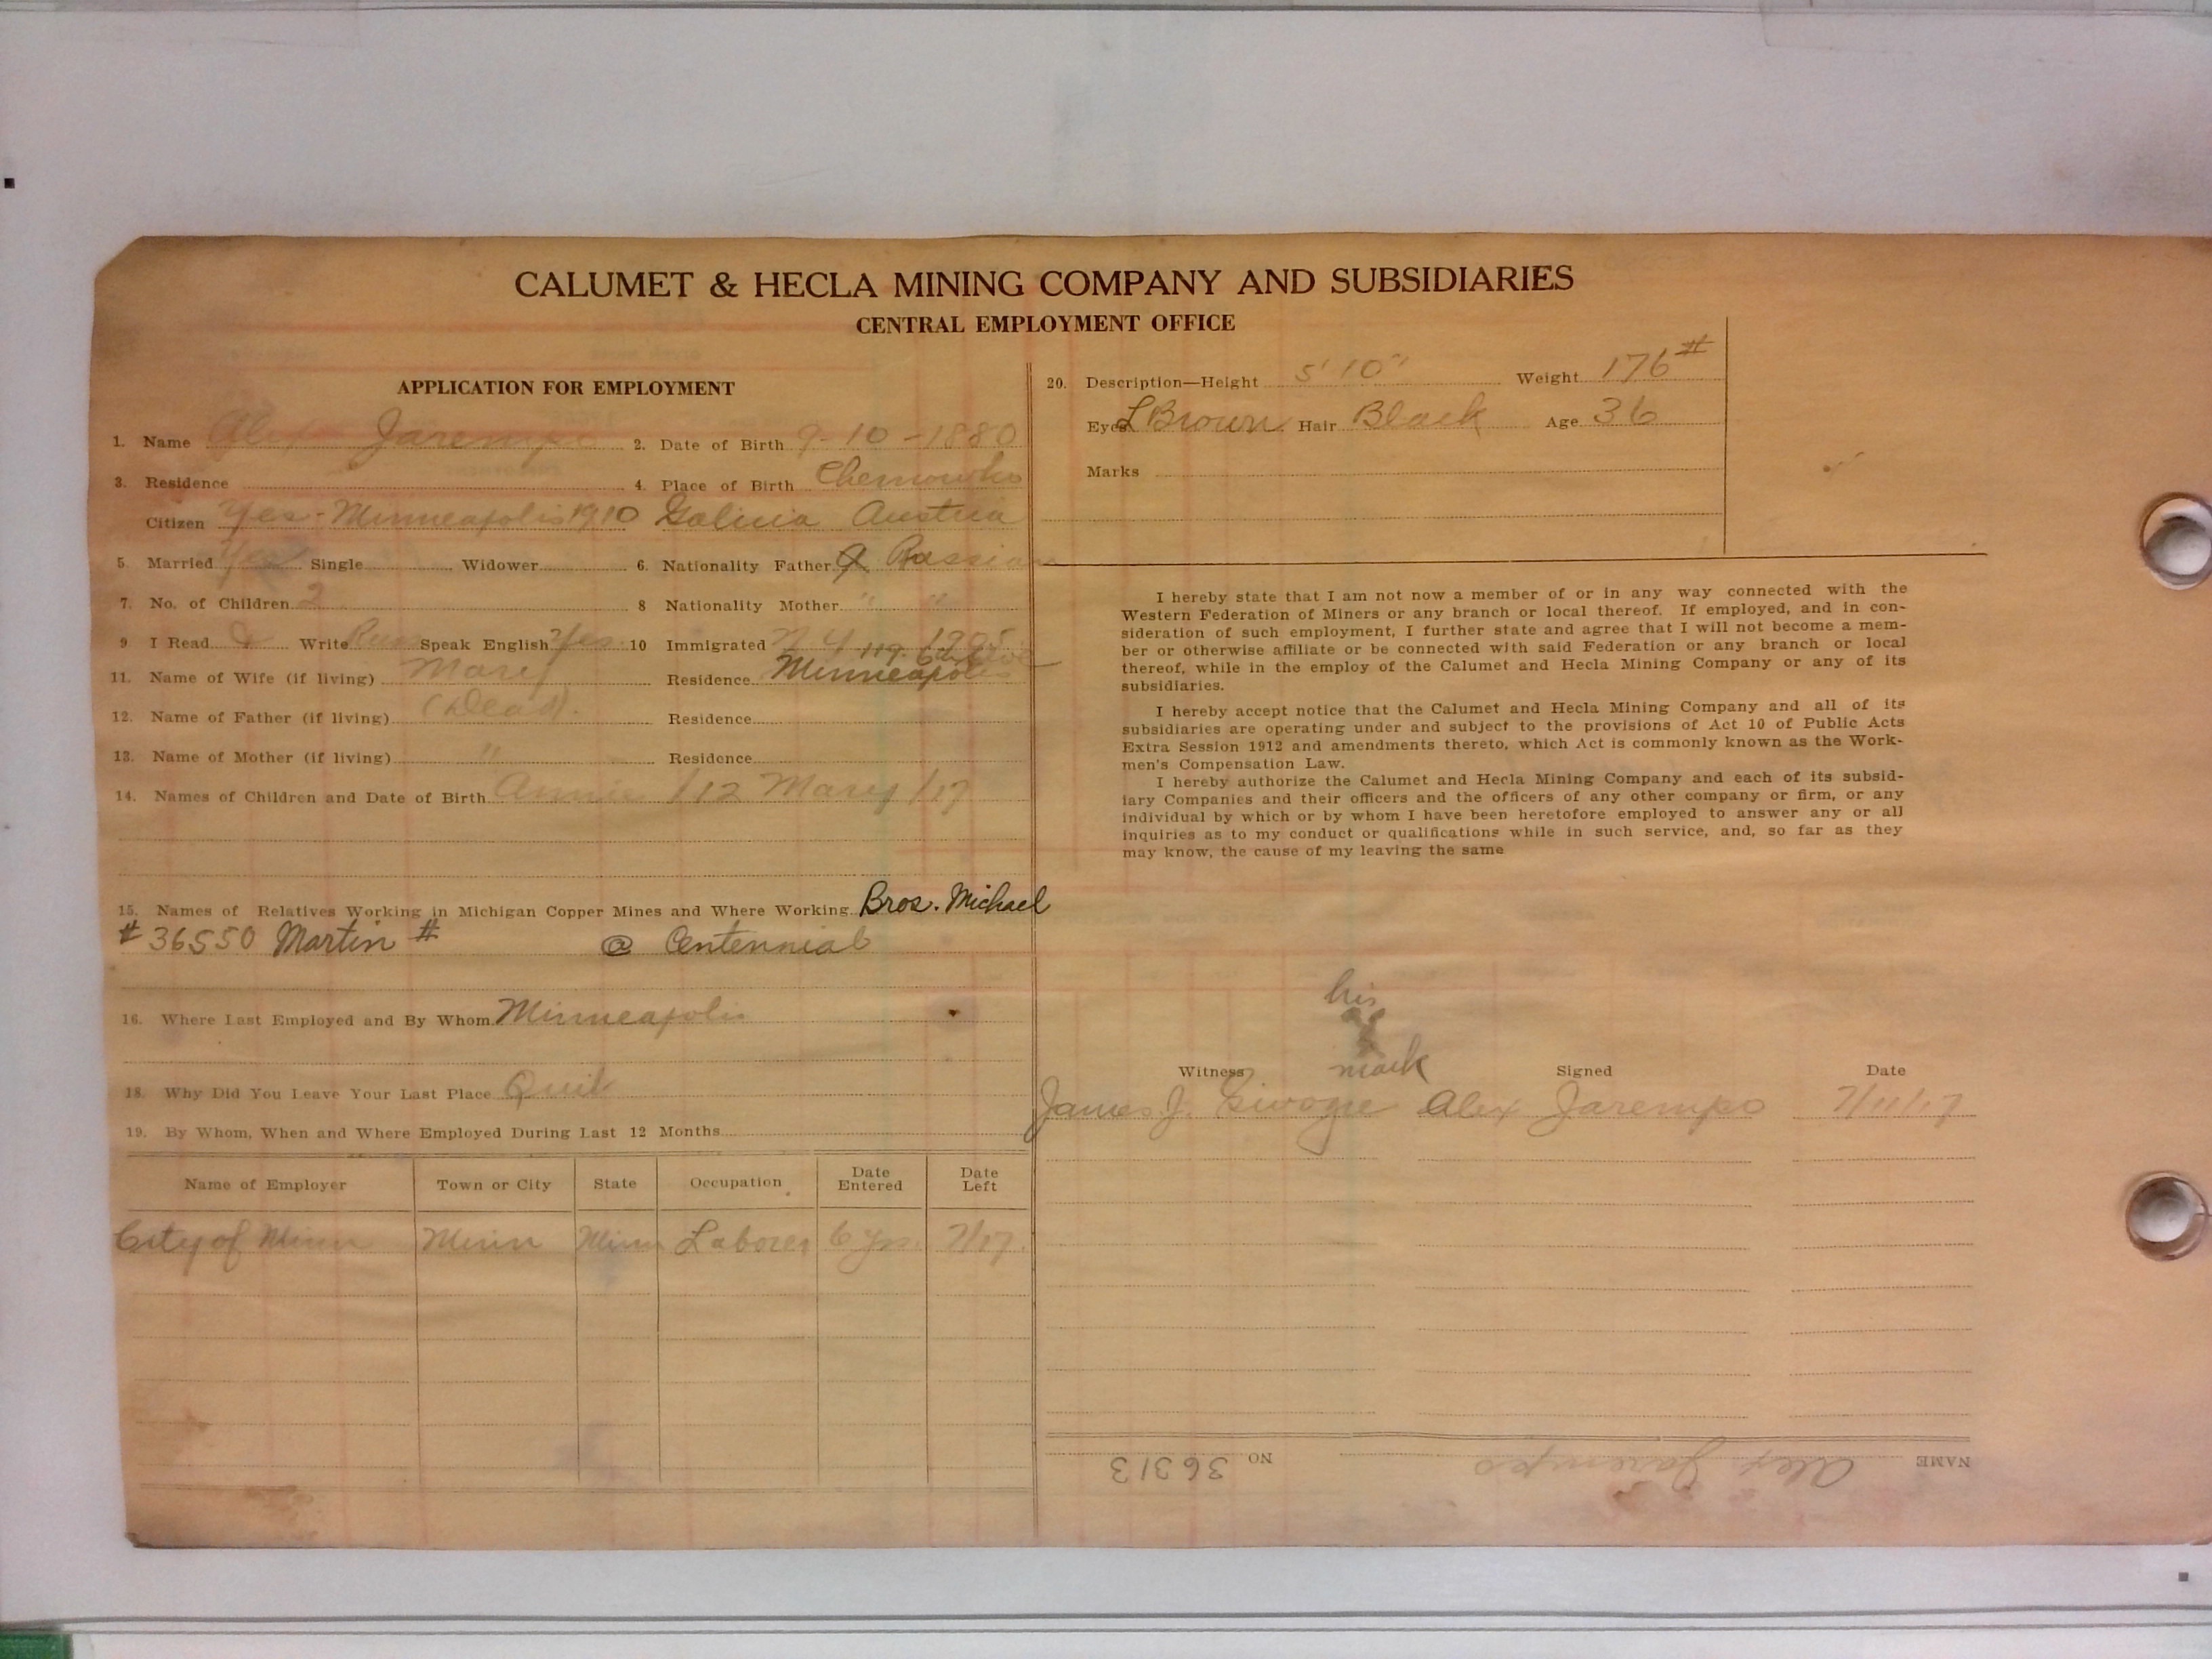 CALUMET & HECLA MINING COMPANY AND SUBSIDIARIES
CENTRAL EMPLOYMENT OFFICE
APPLICATION FOR EMPLOYMENT
1. Name Alex Jarempo 2. Date of Birth 9-10-1880
3. Residence 4. Place of Birth
Citizen Yes - Minneapolis 1910 Galicia Austria
5. Married Yes Single Widower 6. Nationality Father Russian
7. No. of Children 2 8 Nationality Mother " "
9 I Read & Write Russ Speak English? Yes 10 Immigrated N Y 1905
11. Name of Wife (if living) Mary Residence Minneapolis
12. Name of Father (if living) (Dead). Residence
13. Name of Mother (if living) " Residence
14. Names of Children and Date of Birth Annie /12 Mary /17
15. Names of Relatives Working in Michigan Copper Mines and Where Working Bros. Michael
# 36550 Martin # @ Centennial
16. Where Last Employed and By Whom Minneapolis
18. Why Did You Leave Your Last Place Quit
19. By Whom, When and Where Employed During Last 12 Months
Name of Employer Town or City State Occupation Date Entered Date Left
City of Minn Minn Minn Laborer 6 yrs. 7/17.
20. Description—Height 5' 10" Weight 176#
Eyes L Brown Hair Black Age 36
Marks
I hereby state that I am not now a member of or in any way connected with the
Western Federation of Miners or any branch or local thereof. If employed, and in con-
sideration of such employment, I further state and agree that I will not become a mem-
ber or otherwise affiliate or be connected with said Federation or any branch or local
thereof, while in the employ of the Calumet and Hecla Mining Company or any of its
subsidiaries.
I hereby accept notice that the Calumet and Hecla Mining Company and all of its
subsidiaries are operating under and subject to the provisions of Act 10 of Public Acts
Extra Session 1912 and amendments thereto, which Act is commonly known as the Work-
men's Compensation Law.
I hereby authorize the Calumet and Hecla Mining Company and each of its subsid-
iary Companies and their officers and the officers of any other company or firm, or any
individual by which or by whom I have been heretofore employed to answer any or all
inquiries as to my conduct or qualifications while in such service, and, so far as they
may know, the cause of my leaving the same
his
x
Witness mark Signed Date
James J. Alex Jarempo 7/11/17
NAME Alex Jarempo NO 36313